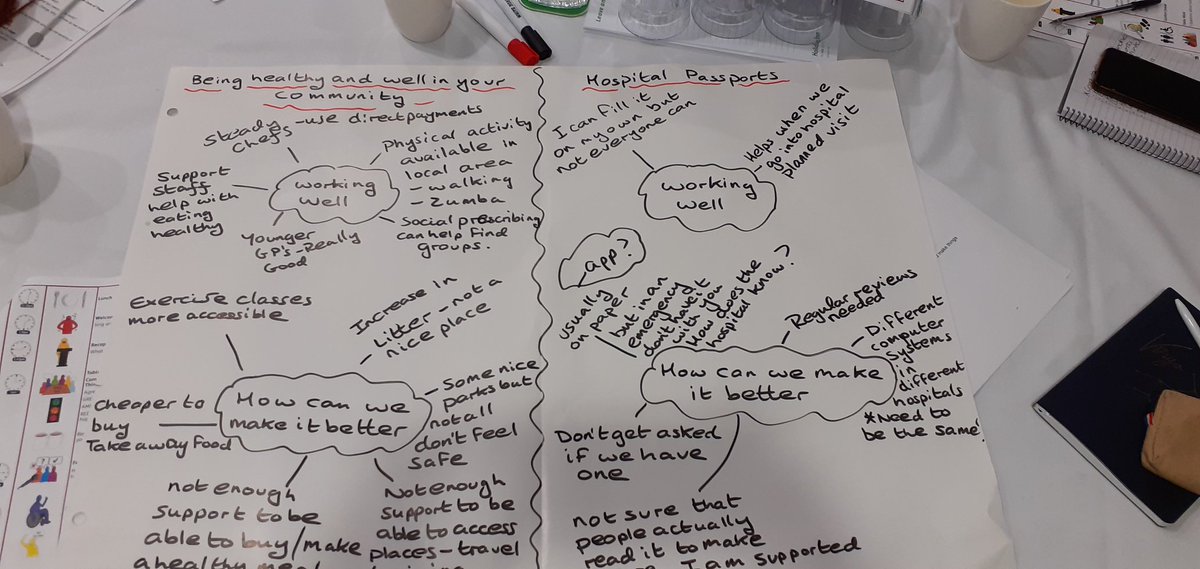 Being healthy and well in your
community
Steady
Chefs
-use direct payments
Support
staff
help with
eating
healthy
working
well
Physical activity
available in
local area
- walking
- Zumba
Social prescribing
can help find
groups.
Younger
GP's-Really
Good
Exercise classes
more accessible
Increase in
Litter - not a
nice place
Cheaper to
buy
Take away Food
How can we
make it better
- Some nice
parks but
not all
don't feel
safe
not enough
support to be
able to buy/make
a healthy
Not enough
support to be
able to access
places - travel
Hospital Passports
I can fill it
on my own but
not everyone can
working
well
Helps when we
- go into hospital
planned visit
app?
usually
on paper
but in an
emergency
don't have it
with you
How does the
hospital know?
Regular reviews
needed
- Different
computer
systems
in
different
hospitals
*Need to
be the same!
How can we make
it better
Don't get asked
if we have
one
not sure that
people actually
read it to make
I am supported